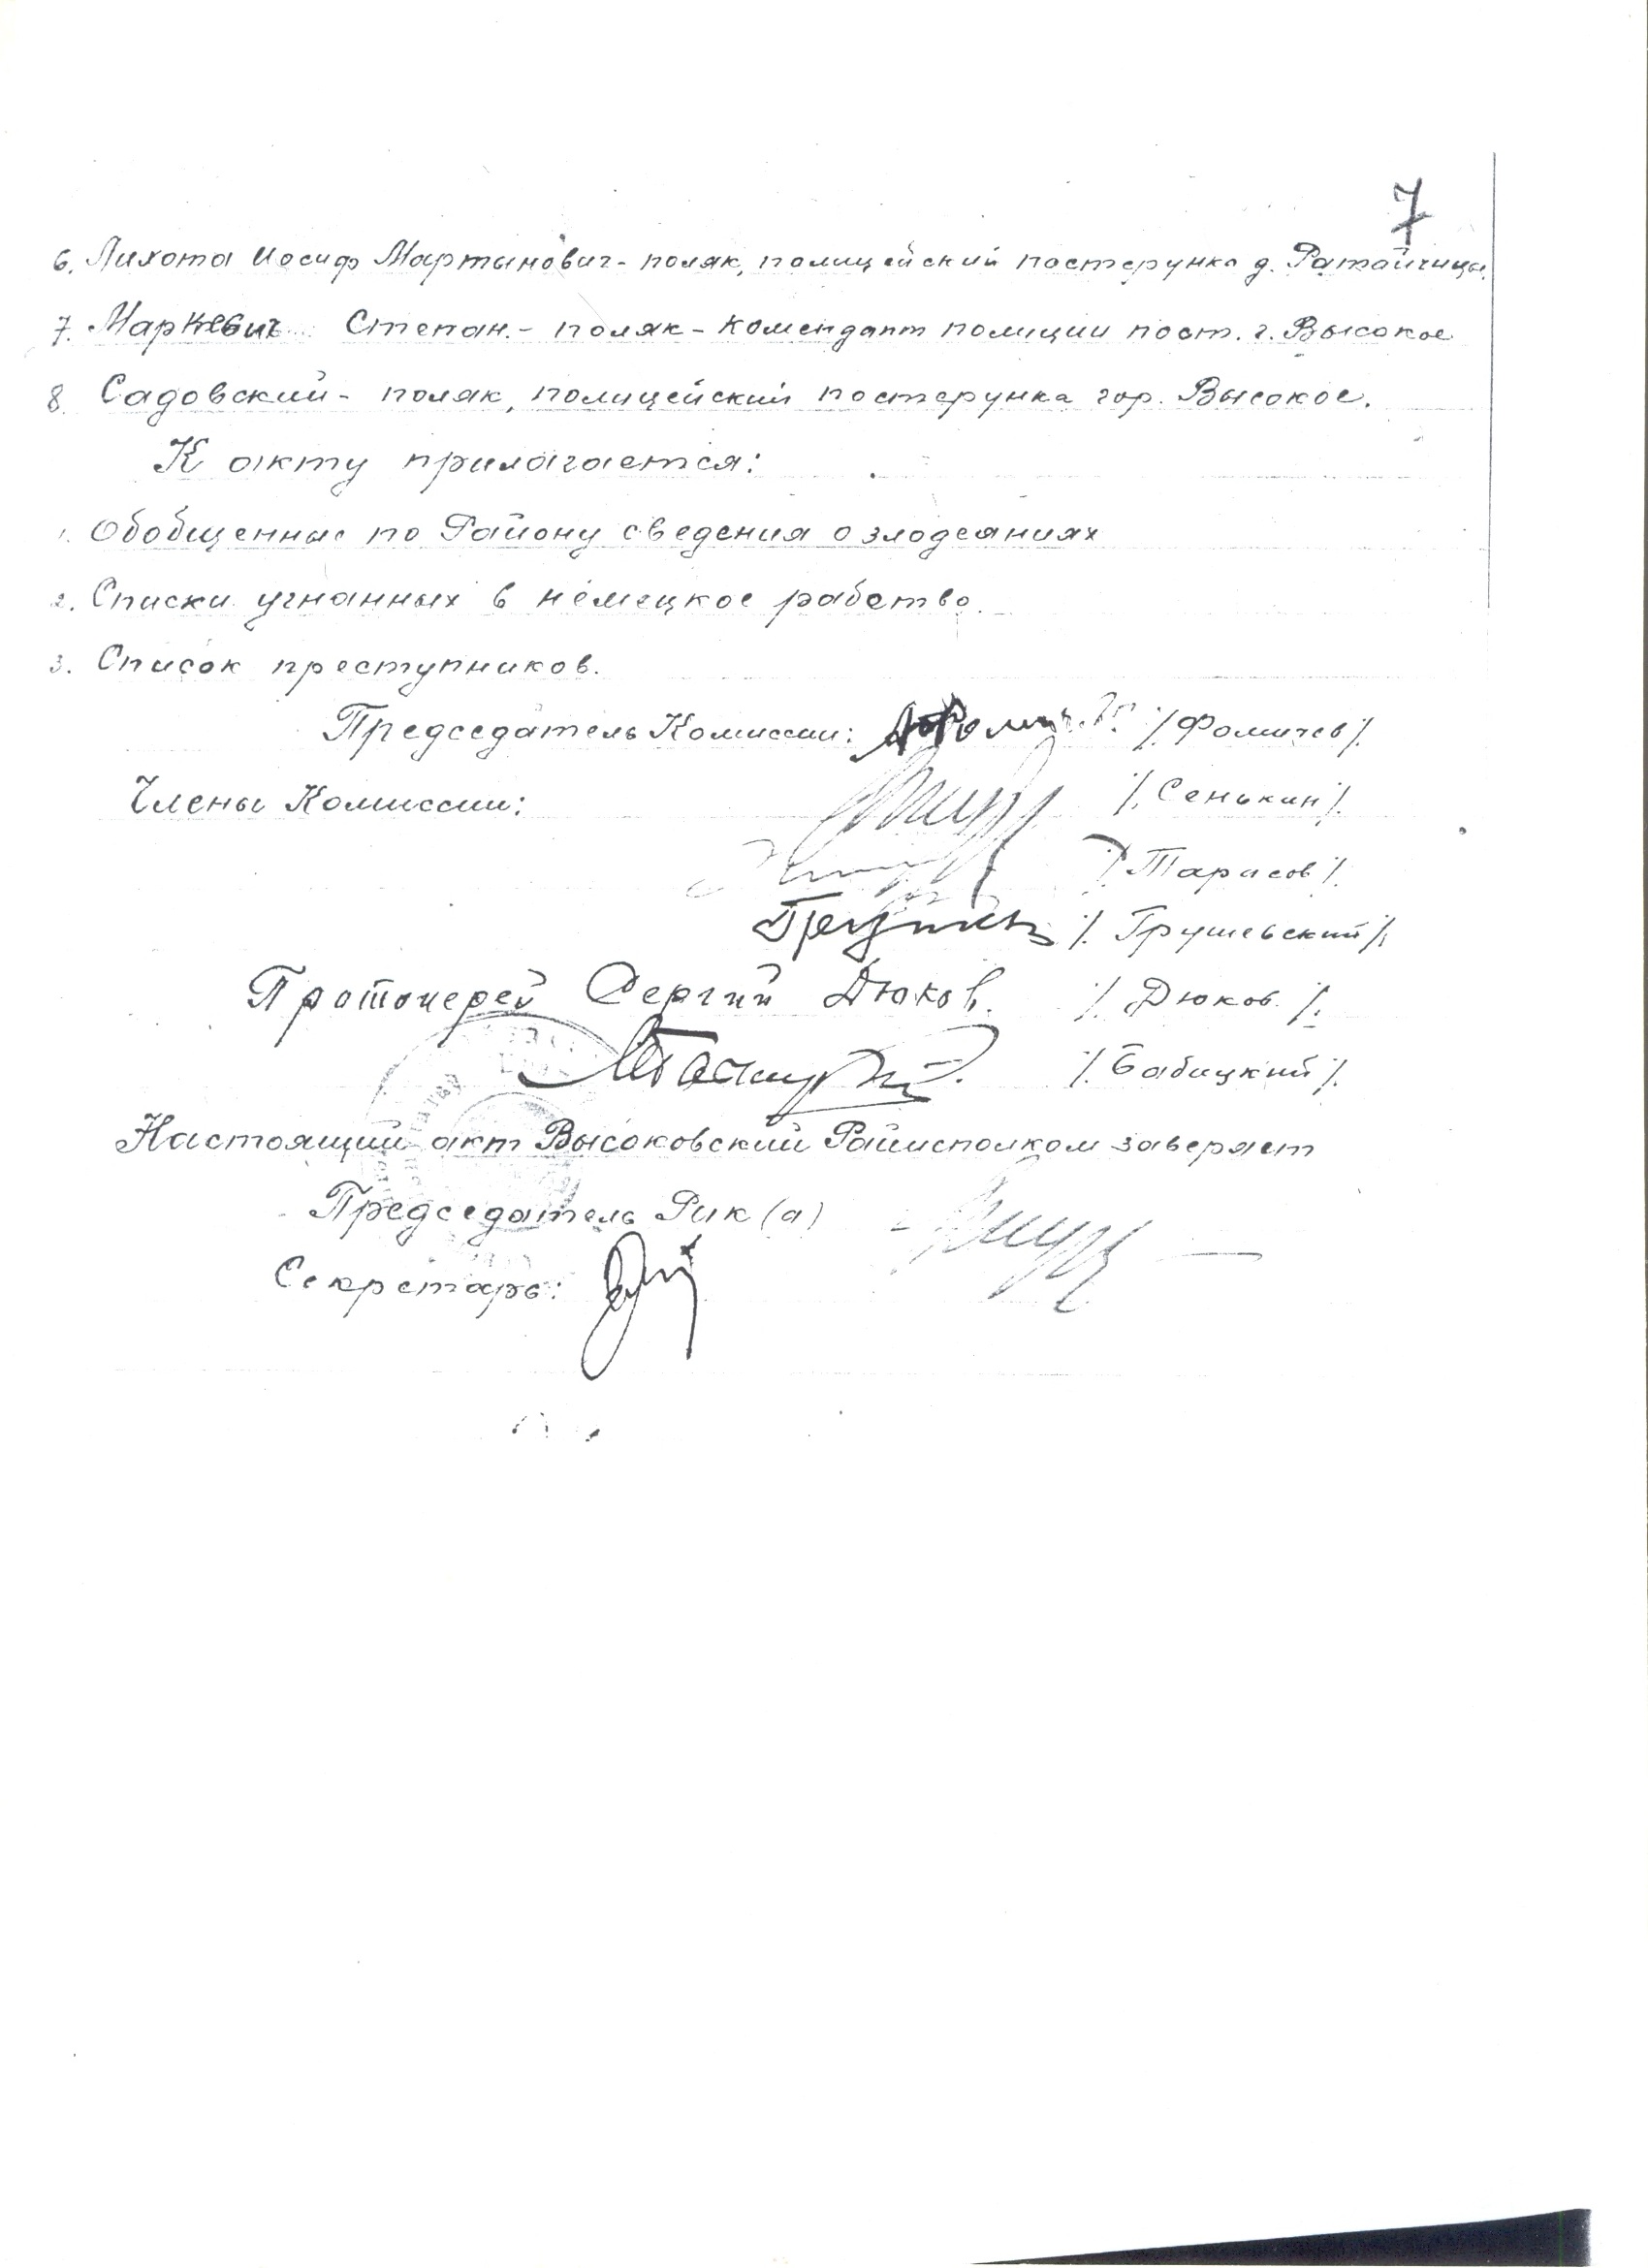 7
6. Лихота Иосиф Мартынович - поляк, полицейский постерунка д. Ратайчицы.
7. Маркевич Степан. - поляк - комендант полиции пост. г. Высокое
8. Садовский - поляк, полицейский постерунка гор. Высокое.
К акту прилагается:
1. Обобщенные по Району сведения о злодеяниях
2. Списки угнанных в немецкое рабство.
3. Список преступников.
Председатель Комиссии: /Фомичев/.
Члены Комиссии: /Сенькин/.
/Тарасов/.
/Грушевский/.
Протоиерей Сергий Дюков. /Дюков./.
/Бабицкий/.
Настоящий акт Высоковский Райисполком заверяет
Председатель Рик(а)
Секретарь: